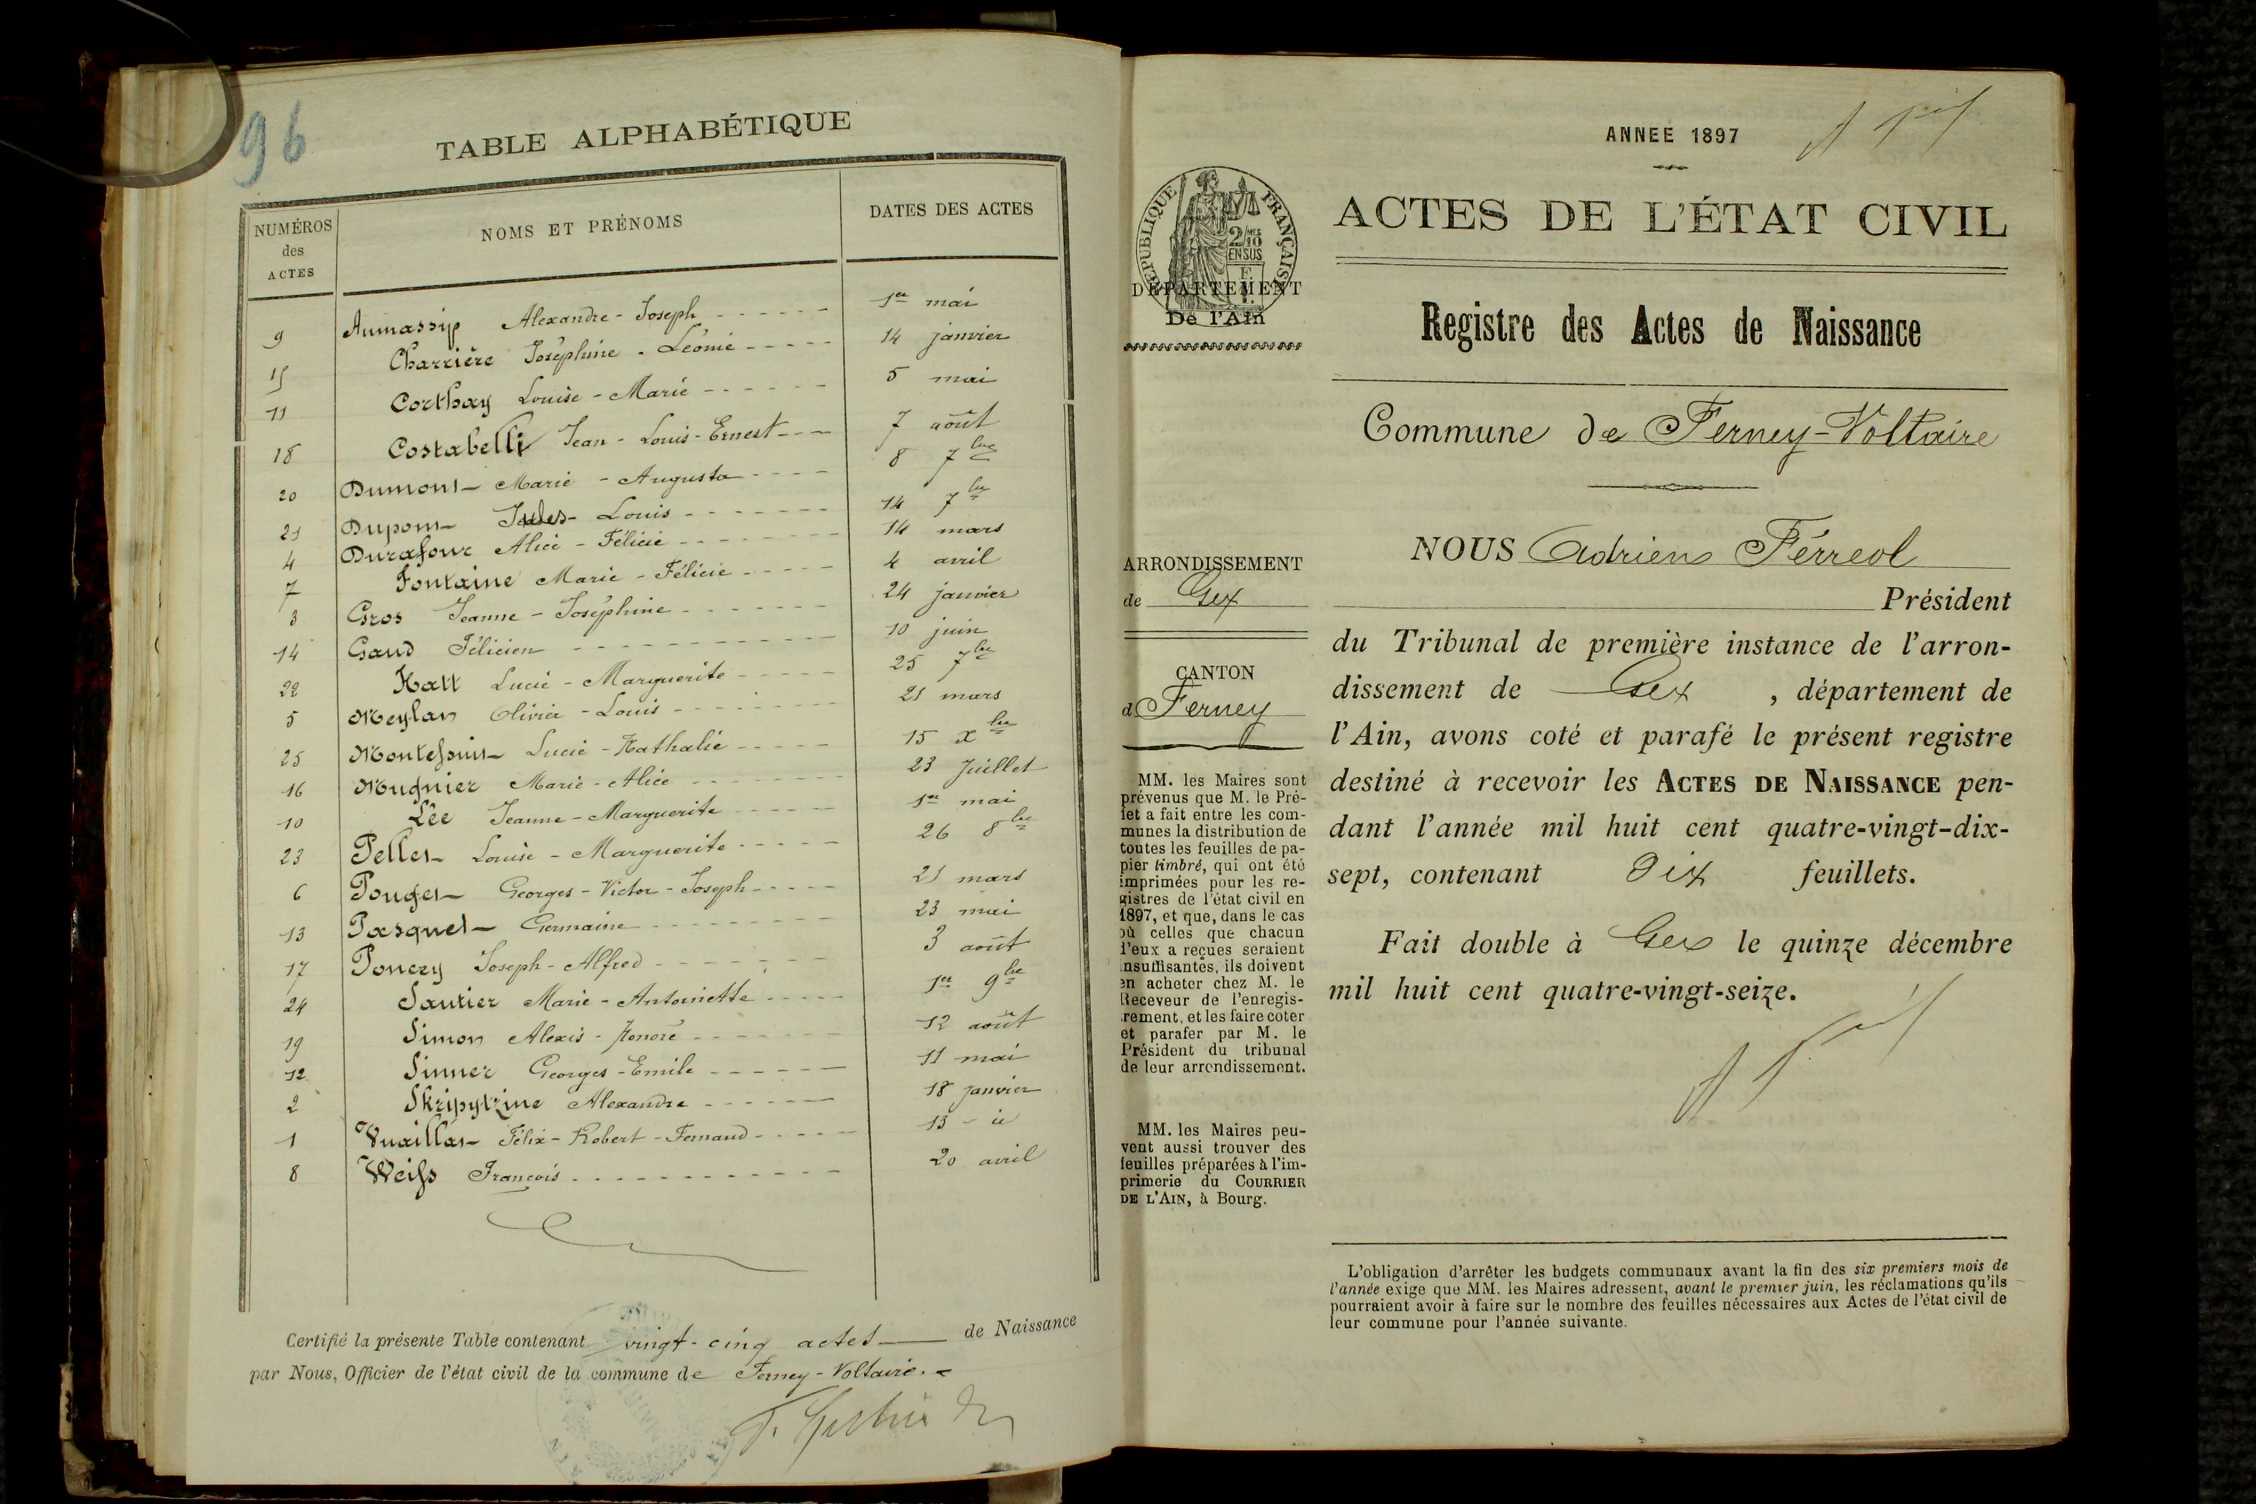 96
TABLE ALPHABÉTIQUE
NUMÉROS des ACTES
NOMS ET PRÉNOMS
DATES DES ACTES
9 Aumassip Alexandre-Joseph 1er mai
15 Charrière Joséphine-Léonie 14 janvier
11 Corthay Louise-Marie 5 mai
18 Costabelli Jean-Louis-Ernest 7 août
20 Dumont Marie-Augusta 8 7bre
21 Dupont Jules-Louis 14 7bre
4 Durafour Alice-Félicie 14 mars
7 Fontaine Marie-Félicie 4 avril
3 Gros Jeanne-Joséphine 24 janvier
14 Gaud Félicien 10 juin
22 Katt Lucie-Marguerite 25 7bre
5 Meylan Olivier-Louis 21 mars
25 Lucie-Nathalie 15 xbre
16 Mugnier Marie-Alice 23 juillet
10 Lée Jeanne-Marguerite 1er mai
23 Pellet Louise-Marguerite 26 8bre
6 Pouget Georges-Victor-Joseph 21 mars
13 Pasquet Germaine 23 mai
17 Poncry Joseph-Alfred 3 août
24 Sautier Marie-Antoinette 1er 9bre
19 Simon Alexis-Honoré 12 août
12 Sinner Georges-Emile 11 mai
2 Skripytzine Alexandre 18 janvier
1 Vuaillat Félix-Robert-Fernand 13 - id
8 Weiss François 20 avril
Certifié la présente Table contenant vingt-cinq actes de Naissance
par Nous, Officier de l'état civil de la commune de Ferney-Voltaire.
ANNEE 1897
RÉPUBLIQUE FRANÇAISE
2/10 MES
EN SUS
ACTES DE L'ÉTAT CIVIL
DÉPARTEMENT
De l'Ain
Registre des Actes de Naissance
Commune de Ferney-Voltaire
ARRONDISSEMENT
de Gex
CANTON
d Ferney
MM. les Maires sont
prévenus que M. le Pré-
fet a fait entre les com-
munes la distribution de
toutes les feuilles de pa-
pier timbré, qui ont été
imprimées pour les re-
gistres de l'état civil en
1897, et que, dans le cas
où celles que chacun
d'eux a reçues seraient
insuffisantes, ils doivent
en acheter chez M. le
Receveur de l'enregis-
trement, et les faire coter
et parafer par M. le
Président du tribunal
de leur arrondissement.
MM. les Maires peu-
vent aussi trouver des
feuilles préparées à l'im-
primerie du COURRIER
DE L'AIN, à Bourg.
NOUS Adrien Férreol
Président
du Tribunal de première instance de l'arron-
dissement de Gex , département de
l'Ain, avons coté et parafé le présent registre
destiné à recevoir les ACTES DE NAISSANCE pen-
dant l'année mil huit cent quatre-vingt-dix-
sept, contenant Dix feuillets.
Fait double à Gex le quinze décembre
mil huit cent quatre-vingt-seize.
L'obligation d'arrêter les budgets communaux avant la fin des six premiers mois de
l'année exige que MM. les Maires adressent, avant le premier juin, les réclamations qu'ils
pourraient avoir à faire sur le nombre des feuilles nécessaires aux Actes de l'état civil de
leur commune pour l'année suivante.